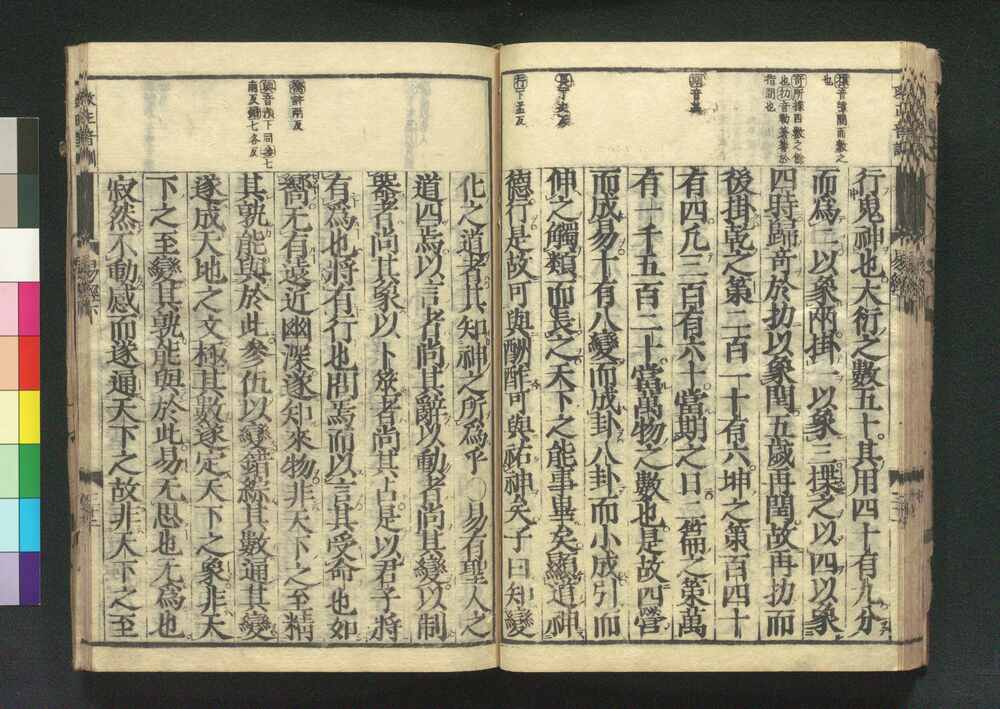 行鬼神也大衍之數五十其用四十有九分
而爲二以象兩掛一以象三揲之以四以象
四時歸奇於扐以象閏五歲再閏故再扐而
後掛乾之策二百一十有六坤之策百四十
有四凡三百有六十當期之日二篇之策萬
有一千五百二十當萬物之數也是故四營
而成易十有八變而成卦八卦而小成引而
伸之觸類而長之天下之能事畢矣顯道神
德行是故可與酬酢可與祐神矣子曰知變
化之道者其知神之所爲乎〇易有聖人之
道四焉以言者尚其辭以動者尚其變以制
器者尚其象以卜筮者尚其占是以君子將
有爲也將有行也問焉而以言其受命也如
嚮无有遠近幽深遂知來物非天下之至精
其孰能與於此參伍以變錯綜其數通其變
遂成天地之文極其數遂定天下之象非天
下之至變其孰能與於此易无思也无爲也
寂然不動感而遂通天下之故非天下之至